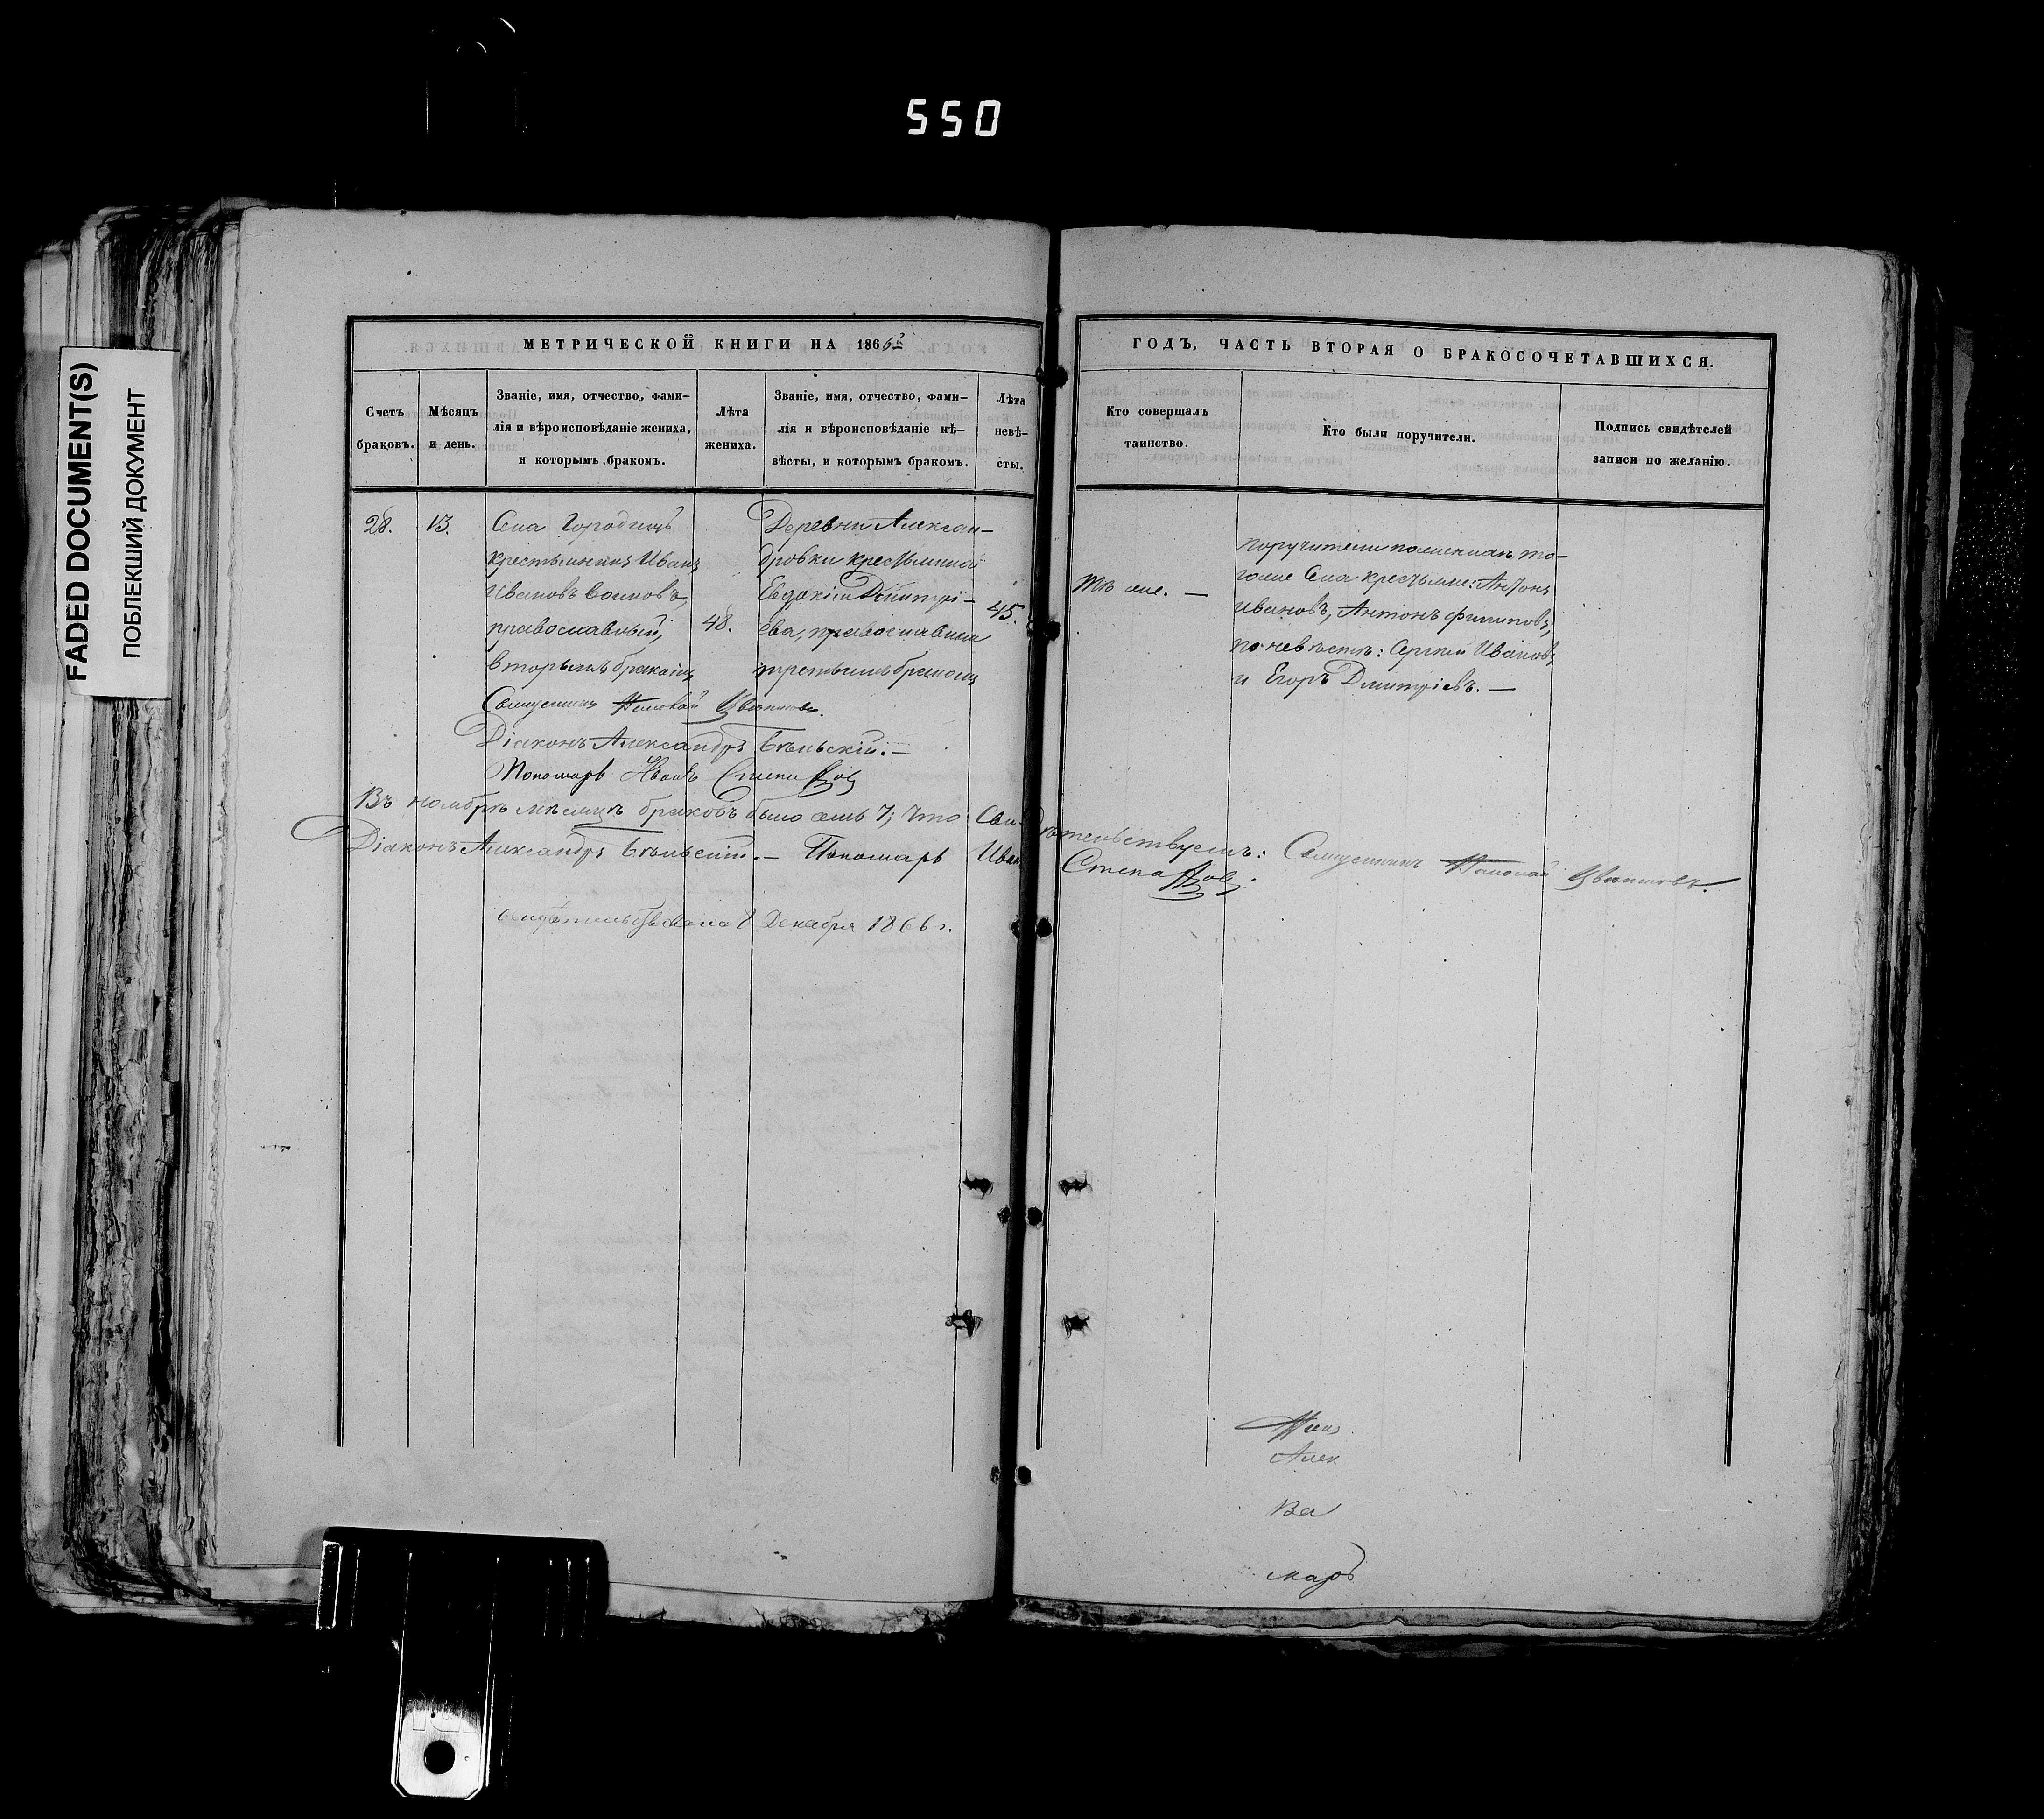 550
FADED DOCUMENT(S)
ПОБЛЕКШИЙ ДОКУМЕНТ
МЕТРИЧЕСКОЙ КНИГИ НА 1866й
Счетъ
браковъ.
Мѣсяцъ
и день.
Званіе, имя, отчество, фами-
лія и вѣроисповѣданіе жениха,
и которымъ бракомъ.
Лѣта
жениха.
Званіе, имя, отчество, фами-
лія и вѣроисповѣданіе нѣ-
вѣсты, и которымъ бракомъ.
Лѣта
невѣ-
сты.
28.
13.
Села Городищъ
крестьянинъ Иванъ
Ивановъ
православный,
вторымъ бракомъ
48.
Деревни Алексан-
дровки крестьянка
Евдокія Димитрі-
ева, православная
третьимъ бракомъ
45.
Священникъ Николай Цвѣтковъ.
Діаконъ Александръ Бѣльскій.—
Пономарь Иванъ Степановъ
Въ ноябрѣ мѣсяцѣ браковъ было семь 7; Что Сви-
Діаконъ Александръ Бѣльскій.— Пономарь Иван
свидѣтельствовано 8 Декабря 1866 г.
ГОДЪ, ЧАСТЬ ВТОРАЯ О БРАКОСОЧЕТАВШИХСЯ.
Кто совершалъ
таинство.
Кто были поручители.
Подпись свидѣтелей
записи по желанію.
Тѣ же.—
поручители по женихѣ то-
гоже Села крестьяне: Антонъ
Ивановъ, Антонъ Филиповъ,
по невѣстѣ: Сергѣй Ивановъ
и Егоръ Дмитріевъ.—
дѣтельствуемъ: Священникъ Николай Цвѣтковъ.
Степановъ.
Алек
Ва
марь